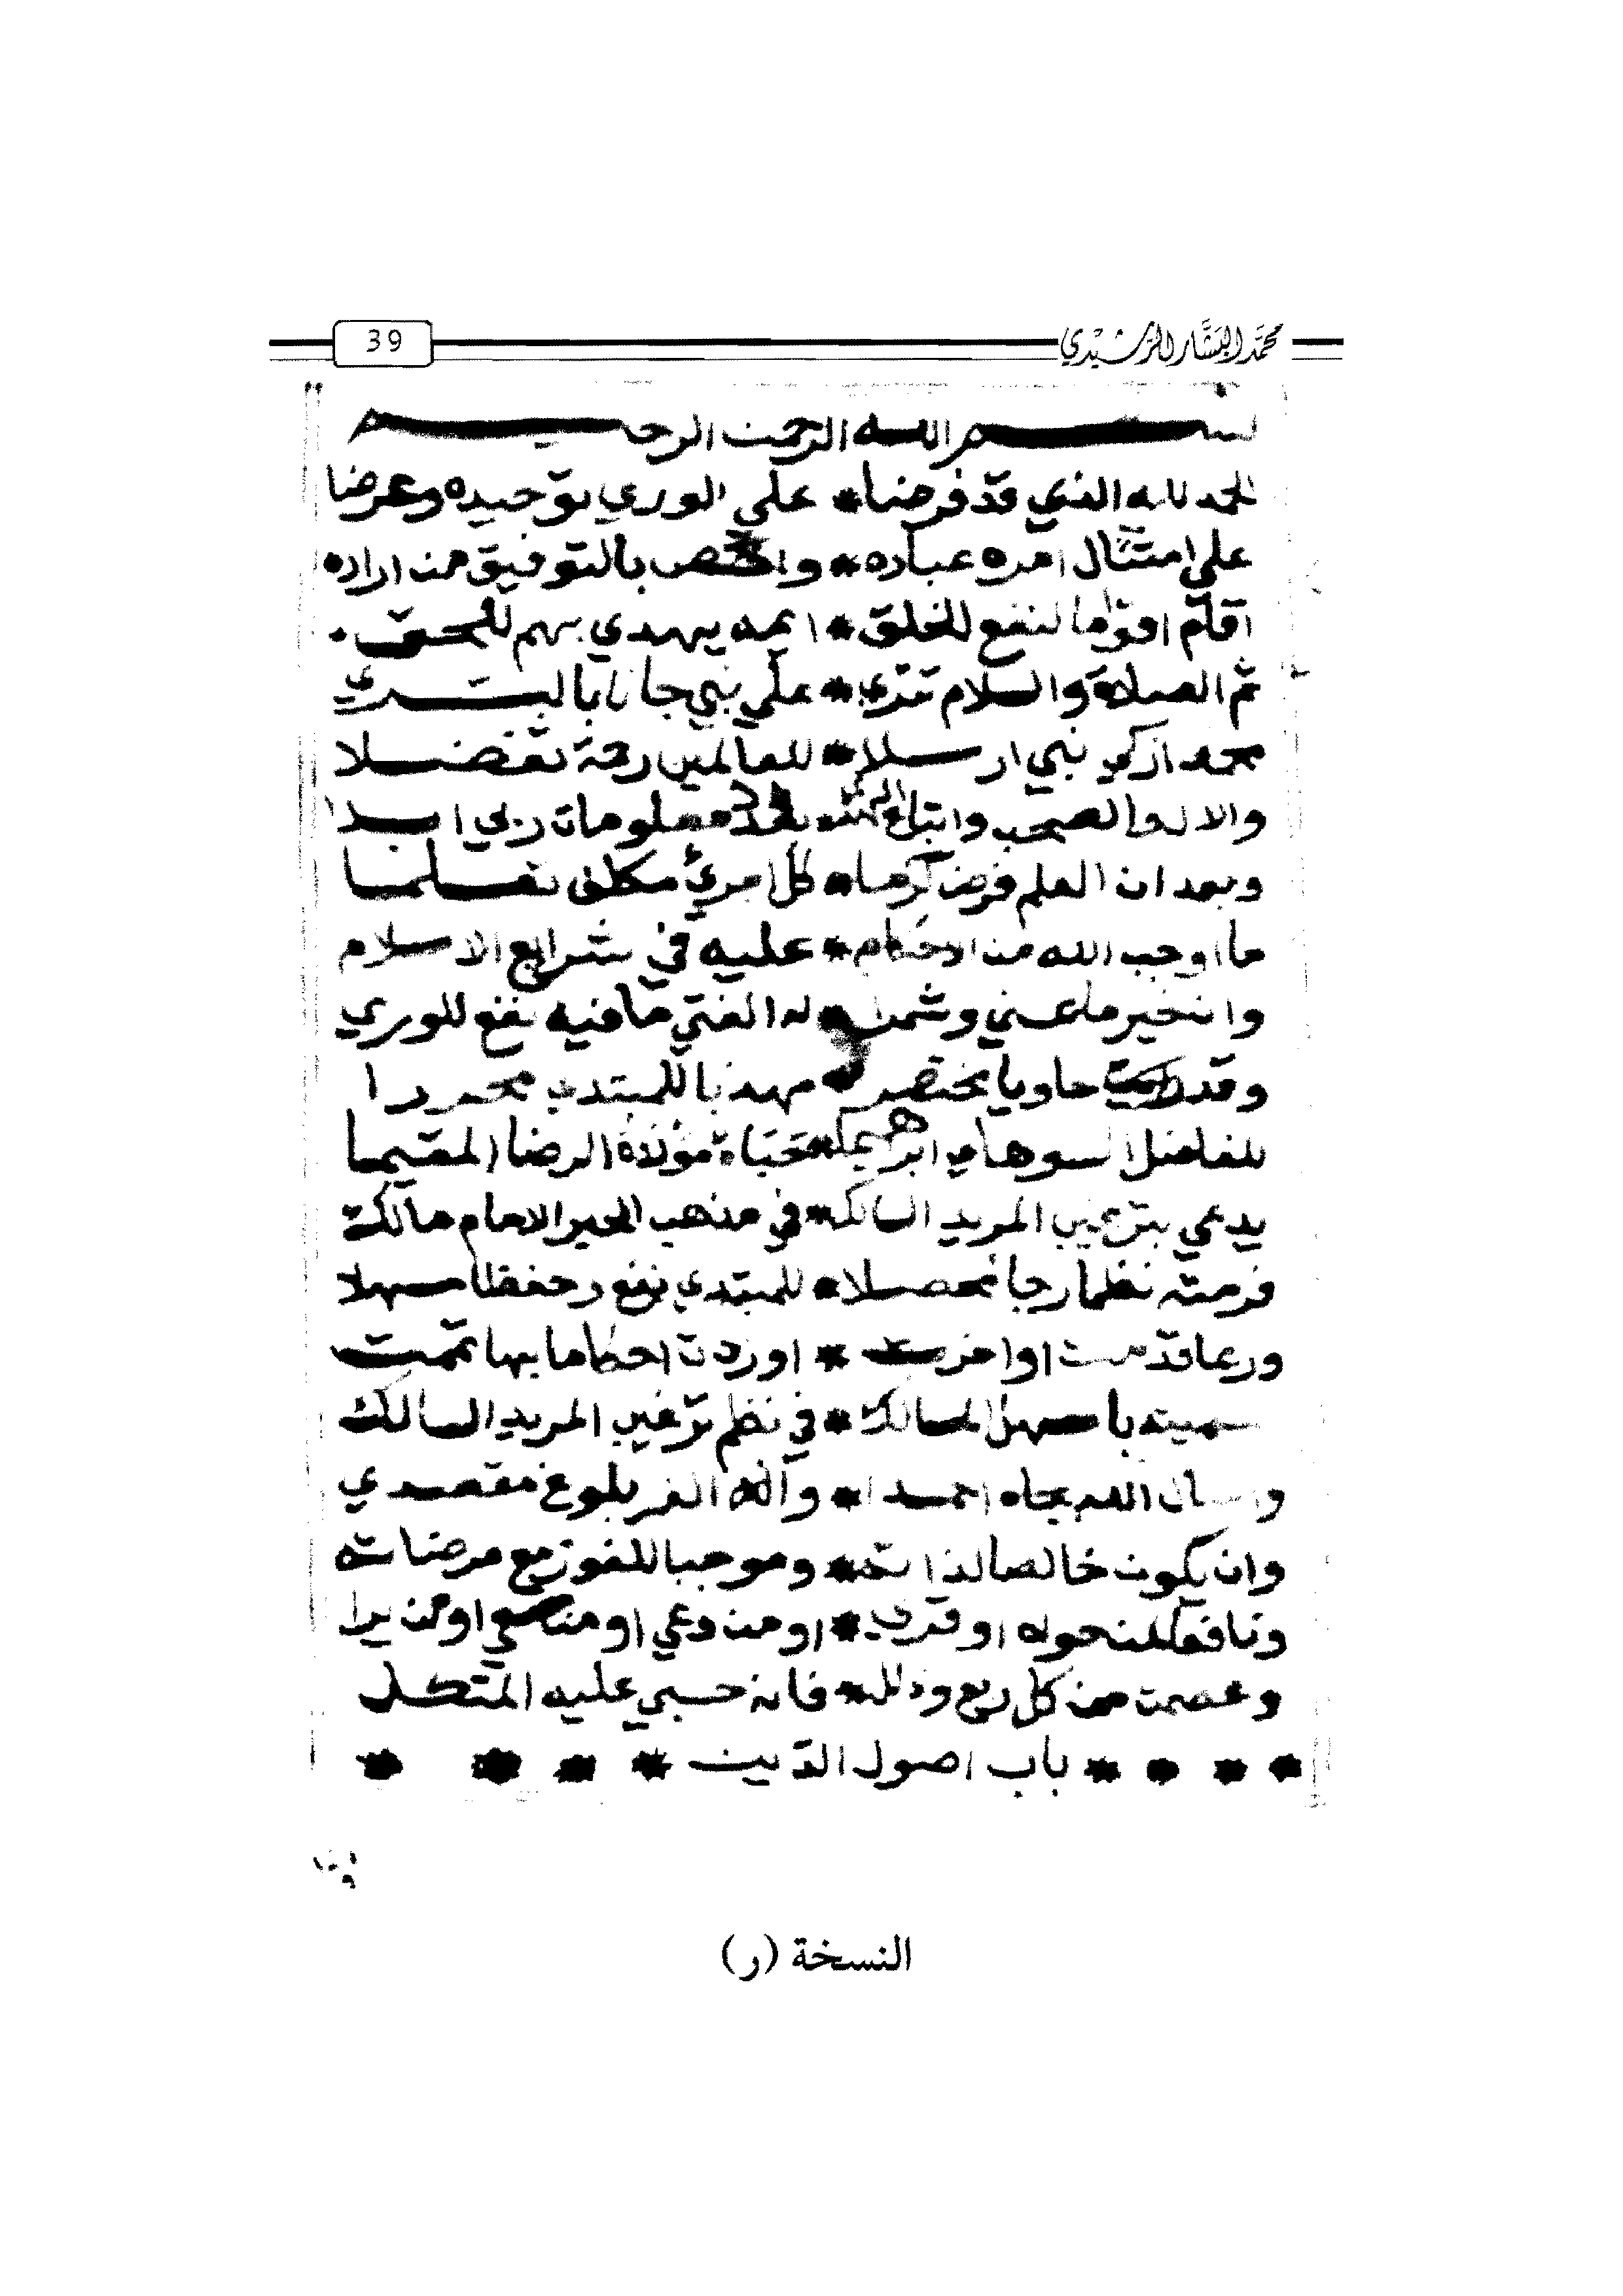 محمد البشار الرشيدي
39
بسم الله الرحمن الرحيم
الحمد لله الذي قد فرضا * على الوري توحيده وعرضا
علي امتثال امره عباده * واختص بالتوفيق من اراده
اقام اقواما لنفع الخلق * ايمة يهدي بهم للحق
ثم الصلاة والسلام تتري * علي نبي جانا بالبشري
محمد ازكي نبي ارسلا * للعالمين رحمة تفضلا
والال والصحب واتباع معلومات ربي ابدا
وبعد ان العلم فرض كرما * كل امرئ مكلف تعلما
ما اوجب الله من الاحكام * عليه في شرايع الاسلام
وان خير ما عني وشمرا * له الفتي ما فيه نفع للوري
وقد رايت حاويا مختصرا * مهذبا للمبتدي محررا
للفاضل السوهاي ابراهيما * حباه مولاه الرضا المقيما
يدعي بترغيب المريد السالك * في مذهب الحبر الامام مالك
فرمته نظما رجا محصلا * للمبتدي نفع وحفظا سهلا
وربما قدمت او اخرت * او زدت احكاما بها تممت
سميته باسهل المسالك * في نظم ترغيب المريد السالك
واسال الله بجاه احمدا * واله الغر بلوغ مقصدي
وان يكون خالصا لذاته * وموجبا للفوز مع مرضاته
ونافعا لمن حواه او قري * او من دعي او من سعي او من يرا
وعصمت من كل زيع وذلل * فانه حسبي عليه المتكل
* * * * باب اصول الدين * * * *
النسخة (ر)